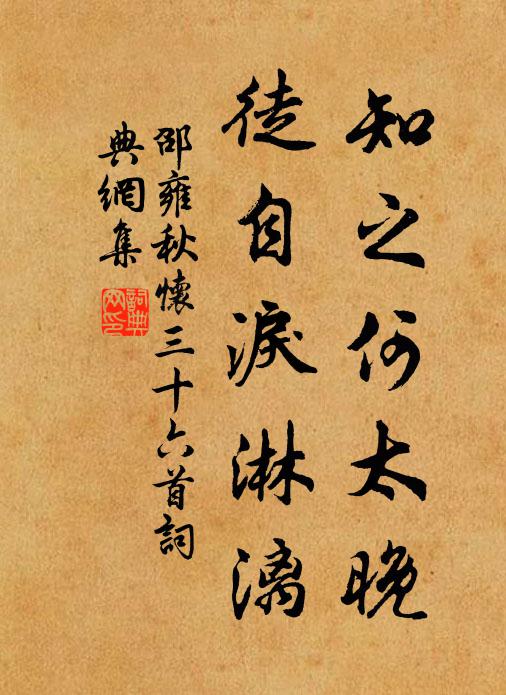 知之何太晚
徒自淚淋漓
邵雍秋懷三十六首詞
典網集
詞典
网印